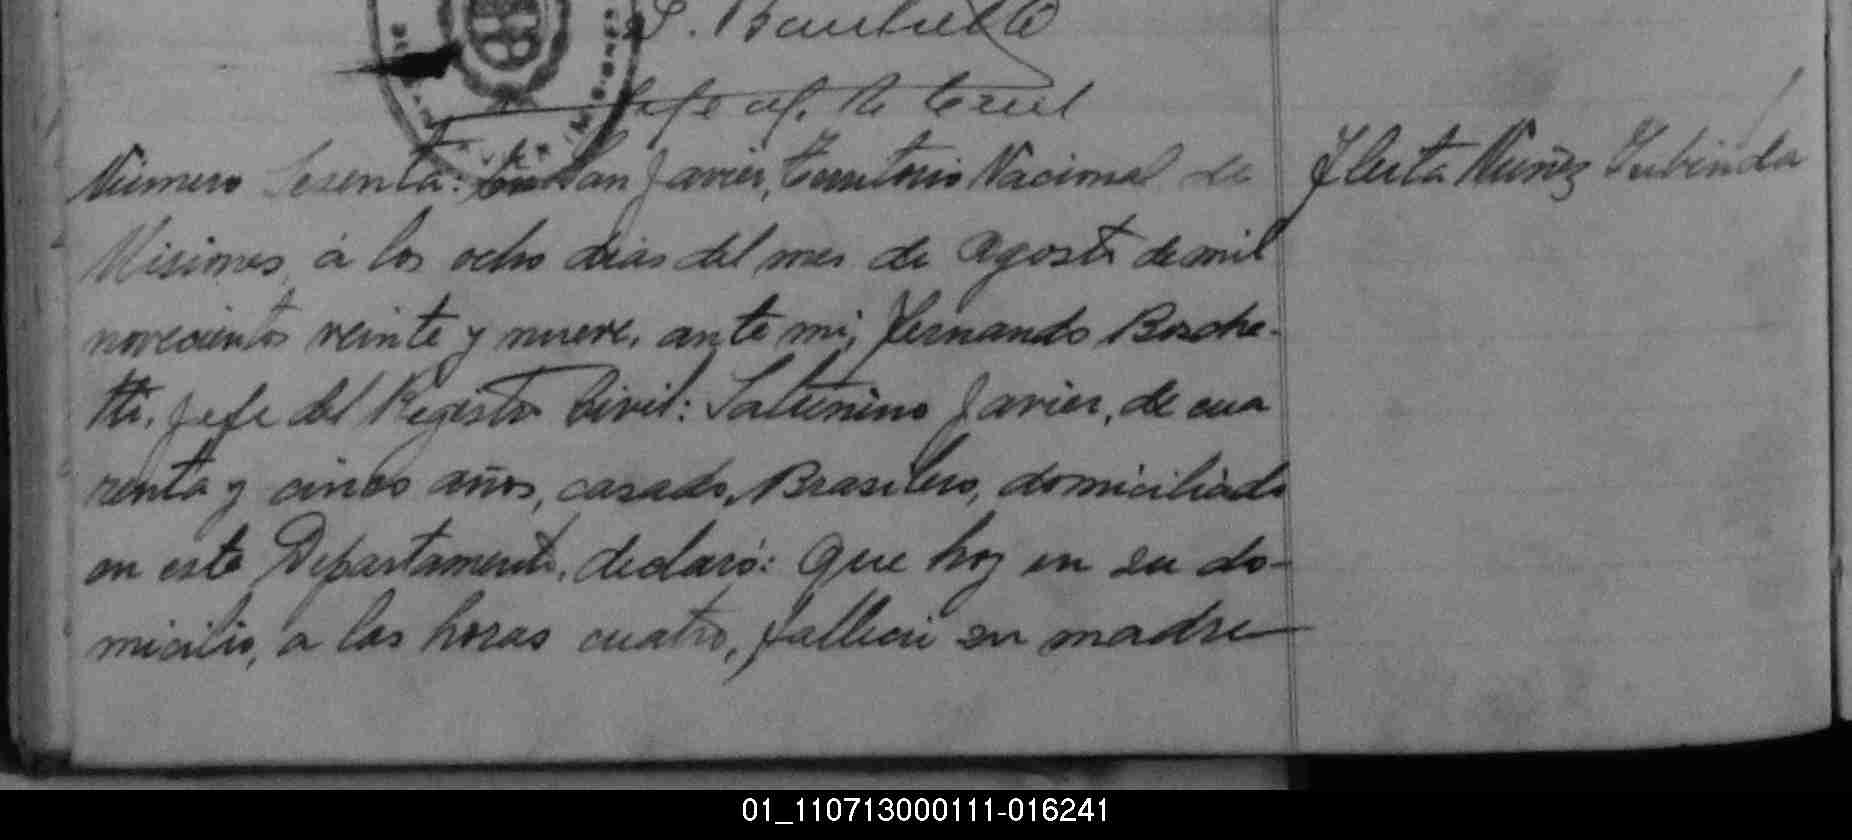 Jefe of. R. Civil
Número Sesenta: En San Javier, Territorio Nacional de
Misiones, á los ocho dias del mes de Agosto de mil
novecientos veinte y nueve, ante mi, Fernando Bosche-
tti, Jefe del Registro Civil: Saturnino Javier, de cua
renta y cinco años, casado, Brasilero, domiciliado
en este Departamento, declaró: Que hoy en su do-
micilio, a las horas cuatro, falleció su madre
Núñez
01_110713000111-016241